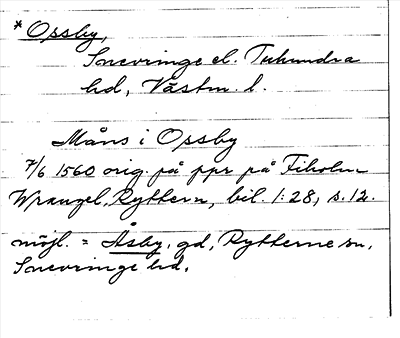 * Opsby,
Snevringe el. Tuhundra
hd, Västm. l.
Måns i Opsby
7/6 1560 orig. på ppr på Fiholm
Wrangel, Rytthern, bil. 1:28, s. 12.
möjl. = Åsby, gd, Rytterne sn,
Snevringe hd.